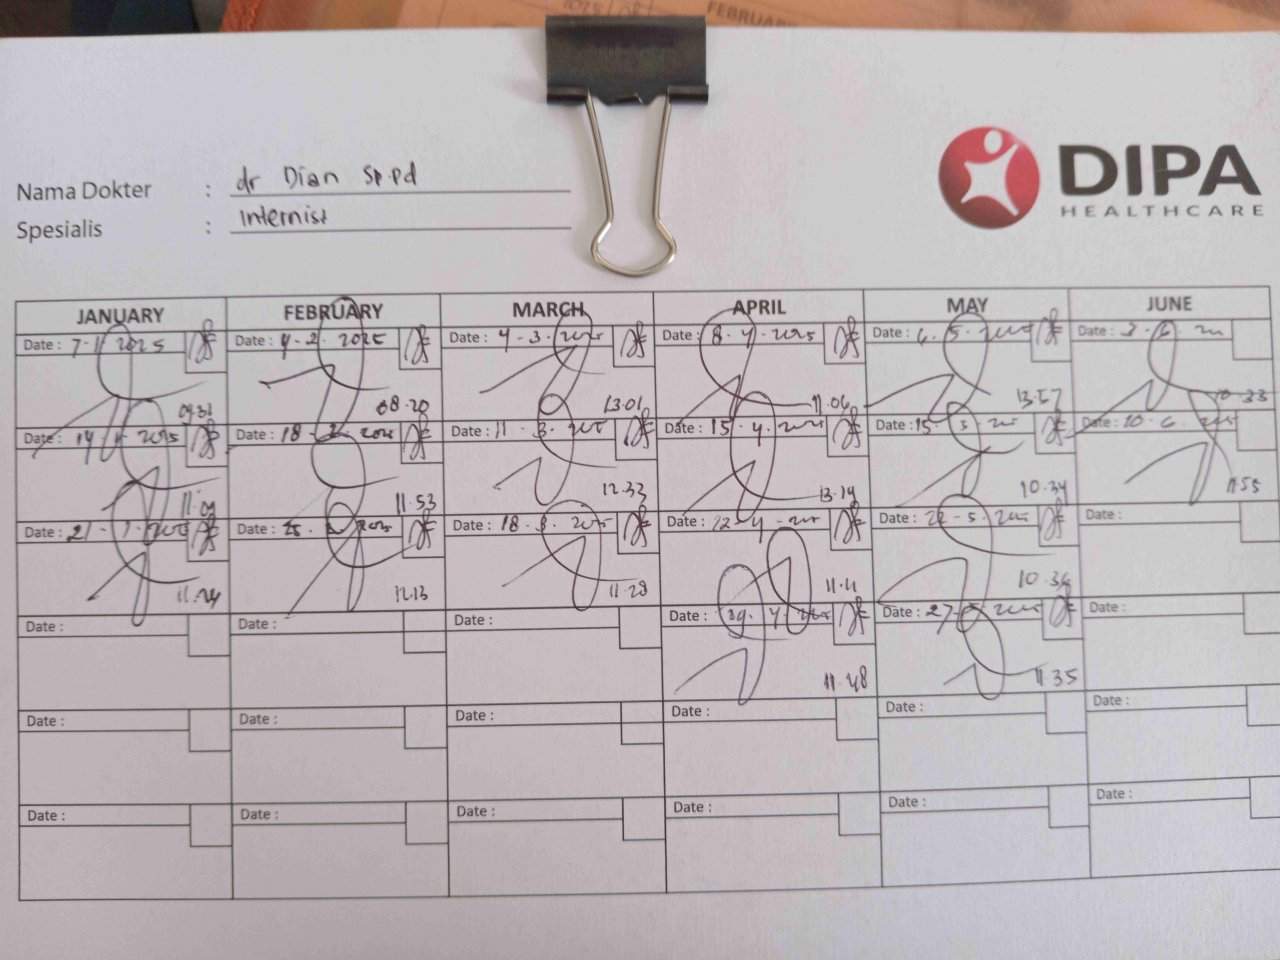 FEBRUARY
DIPA
HEALTHCARE
Nama Dokter : dr Dian Sp.pd
Spesialis : Internist
JANUARY FEBRUARY MARCH APRIL MAY JUNE
Date : 7-1-2025 Date : 4-2-2025 Date : 4-3-2025 Date : 8-4-2025 Date : 6-5-2025 Date : 3-6-
08.20 13.01 11.06 13.57
Date : 14 Date : 18 Date : 11-3- Date : 15-4- Date : 15-5- Date : 10-6-
11.53 12.33 13.19 10.34 11.55
Date : 21 Date : Date : 18-3-2025 Date : 22-4- Date : 22-5- Date :
11.24 12.13 11.28 11.11 10.36
Date : Date : Date : Date : 29-4- Date : 27-5- Date :
11.48 11.35
Date : Date : Date : Date : Date : Date :
Date : Date : Date : Date : Date : Date :